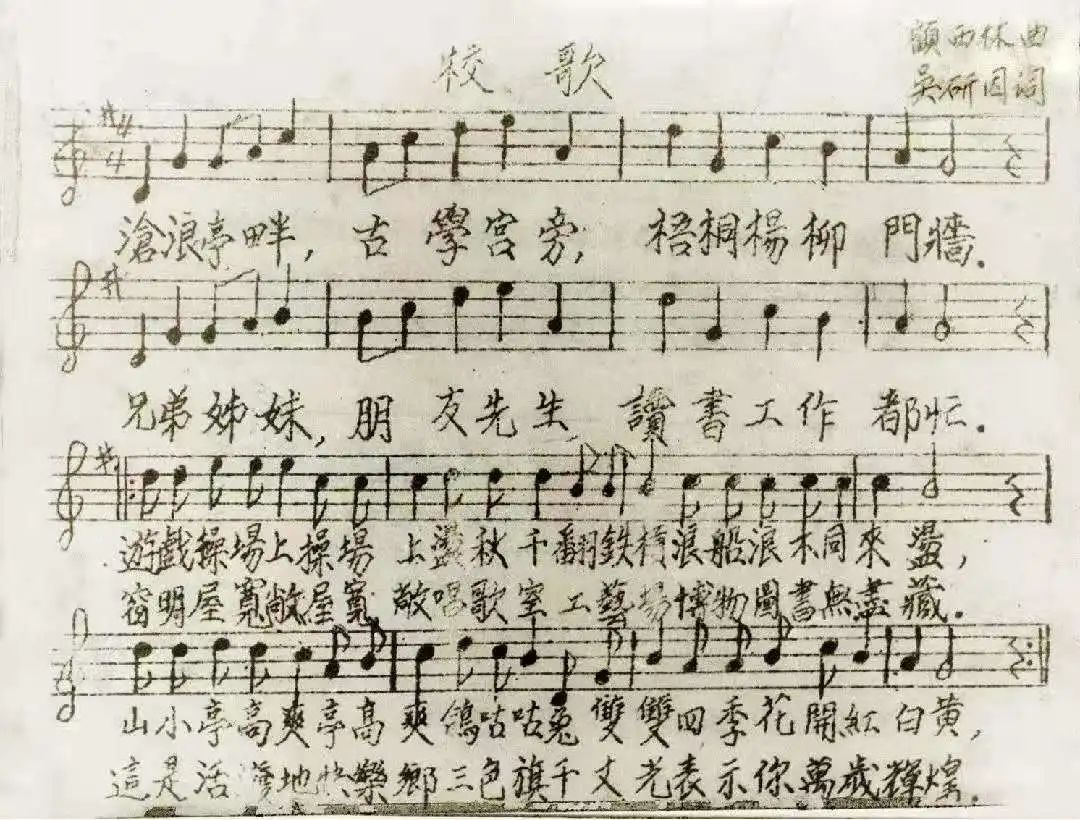 校歌
顧西林曲
吳研因词
4
4
滄浪亭畔，古學宮旁，梧桐楊柳門牆．
兄弟姊妹，朋友先生，讀書工作都忙．
遊戲操場上操場上盪秋千翻鉄槓浪船浪木同來盪，
窗明屋寬敞屋寬敞唱歌室工藝場博物圖書無盡藏．
山小亭高爽亭高爽鴿咕咕兔雙雙四季花開紅白黄，
這是活潑地快樂鄉三色旗千丈光表示你萬歲輝煌．